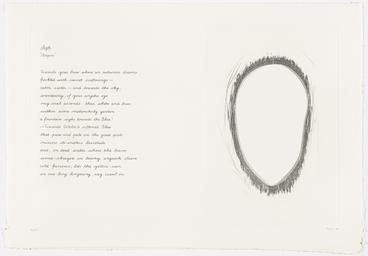 Sigh
"Soupir"
Towards your brow where an autumn dreams
freckled with russet scatterings—
calm sister—and towards the sky,
wandering, of your angelic eye
my soul ascends: thus, white and true,
within some melancholy garden
a fountain sighs towards the Blue!
—Towards October's softened Blue
that pure and pale in the great pools
mirrors its endless lassitude
and, on dead water where the leaves
wind-strayed in tawny anguish cleave
cold furrows, lets the yellow sun
in one long lingering ray crawl on